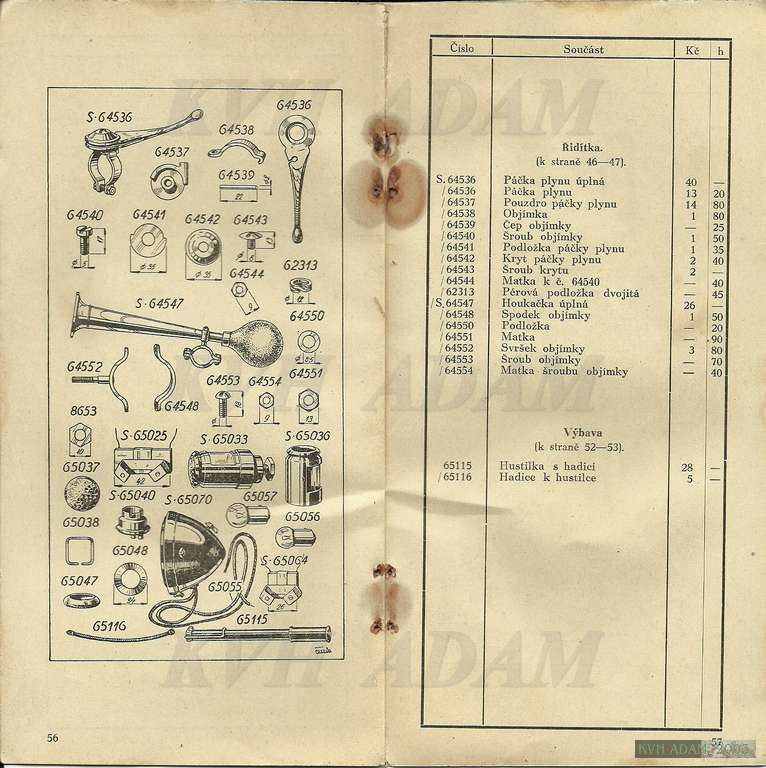 S·64536
64536
64538
64537
64539
22
64540
64541
64542
64543
ø 5
ø 35
ø 35
ø 6
64544
62313
9
ø 12
S·64547
64550
ø 8,5
64552
64548
64553
64554
64551
9
13
8653
S·65025
S·65033
S·65036
10
42
65037
S·65040
S·65070
65057
65038
65056
65048
S·65064
65047
34
65055
26
65116
65115
56
Číslo Součást Kč h
Řidítka.
(k straně 46—47).
S. 64536 Páčka plynu úplná 40 —
/ 64536 Páčka plynu 13 20
/ 64537 Pouzdro páčky plynu 14 80
/ 64538 Objímka 1 80
/ 64539 Čep objímky — 25
/ 64540 Šroub objímky 1 50
/ 64541 Podložka páčky plynu 1 35
/ 64542 Kryt páčky plynu 2 40
/ 64543 Šroub krytu 2 —
/ 64544 Matka k č. 64540 — 40
/ 62313 Pérová podložka dvojitá — 45
/S. 64547 Houkačka úplná 26 —
/ 64548 Spodek objímky 1 50
/ 64550 Podložka — 20
/ 64551 Matka — 90
/ 64552 Svršek objímky 3 80
/ 64553 Šroub objímky — 70
/ 64554 Matka šroubu objímky — 40
Výbava
(k straně 52—53).
65115 Hustilka s hadicí 28 —
/ 65116 Hadice k hustilce 5 —
57
KVH ADAM
KVH ADAM
KVH ADAM
KVH ADAM 2005